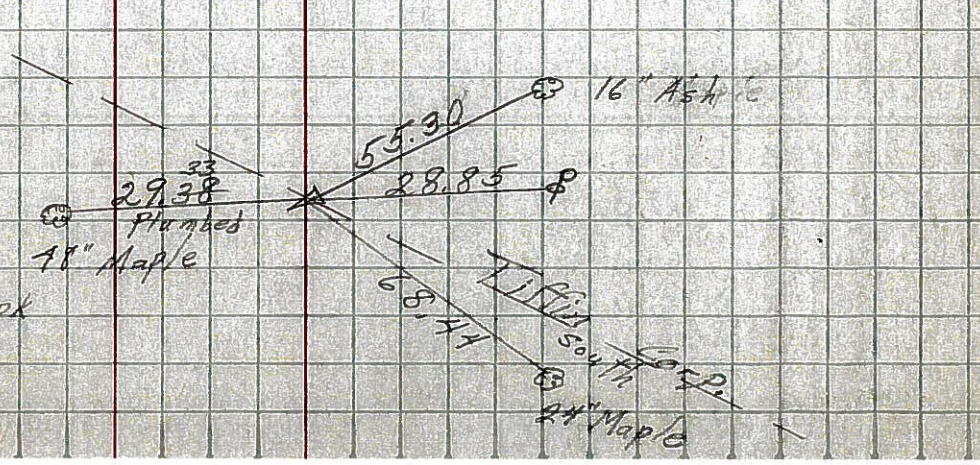 16" Ash
55.30
33
29.38
28.85
Plumbed
48" Maple
68.44
Tiffin
South Corp.
24" Maple